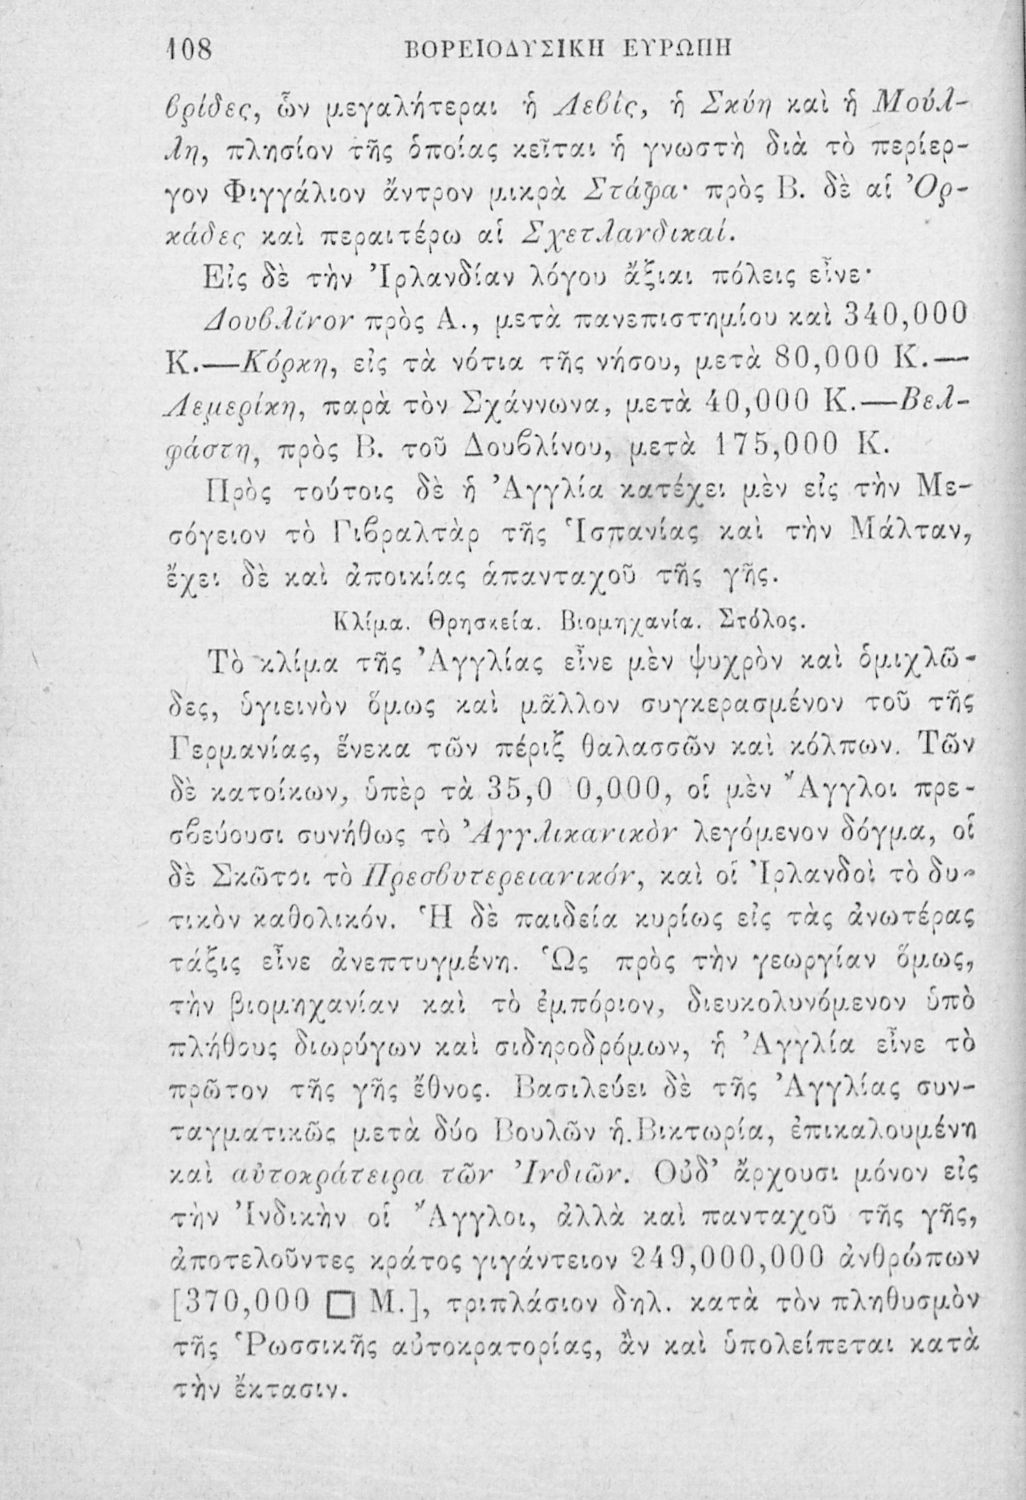 108 ΒΟΡΕΙΟΔΥΣΙΚΗ ΕΥΡΩΠΗ
βρίδες, ὧν μεγαλήτεραι ἡ Λεβὶς, ἡ Σκύη καὶ ἡ Μούλ-
λη, πλησίον τῆς ὁποίας κεῖται ἡ γνωστὴ διὰ τὸ περίερ-
γον Φιγγάλιον ἄντρον μικρὰ Στάφα· πρὸς Β. δὲ αἱ Ὀρ-
κάδες καὶ περαιτέρω αἱ Σχετλανδικαί.
Εἰς δὲ τὴν Ἰρλανδίαν λόγου ἄξιαι πόλεις εἶνε·
Δουβλῖνον πρὸς Α., μετὰ πανεπιστημίου καὶ 340,000
Κ.—Κόρκη, εἰς τὰ νότια τῆς νήσου, μετὰ 80,000 Κ.—
Λεμερίκη, παρὰ τὸν Σχάννωνα, μετὰ 40,000 Κ.—Βελ-
φάστη, πρὸς Β. τοῦ Δουβλίνου, μετὰ 175,000 Κ.
Πρὸς τούτοις δὲ ἡ Ἀγγλία κατέχει μὲν εἰς τὴν Με-
σόγειον τὸ Γιβραλτὰρ τῆς Ἱσπανίας καὶ τὴν Μάλταν,
ἔχει δὲ καὶ ἀποικίας ἁπανταχοῦ τῆς γῆς.
Κλίμα. Θρησκεία. Βιομηχανία. Στόλος.
Τὸ κλίμα τῆς Ἀγγλίας εἶνε μὲν ψυχρὸν καὶ ὁμιχλῶ-
δες, ὑγιεινὸν ὅμως καὶ μᾶλλον συγκερασμένον τοῦ τῆς
Γερμανίας, ἕνεκα τῶν πέριξ θαλασσῶν καὶ κόλπων. Τῶν
δὲ κατοίκων, ὑπὲρ τὰ 35,0 0,000, οἱ μὲν Ἄγγλοι πρε-
σβεύουσι συνήθως τὸ Ἀγγλικανικὸν λεγόμενον δόγμα, οἱ
δὲ Σκῶτοι τὸ Πρεσβυτερειανικόν, καὶ οἱ Ἰρλανδοὶ τὸ δυ-
τικὸν καθολικόν. Ἡ δὲ παιδεία κυρίως εἰς τὰς ἀνωτέρας
τάξις εἶνε ἀνεπτυγμένη. Ὡς πρὸς τὴν γεωργίαν ὅμως,
τὴν βιομηχανίαν καὶ τὸ ἐμπόριον, διευκολυνόμενον ὑπὸ
πλήθους διωρύγων καὶ σιδηροδρόμων, ἡ Ἀγγλία εἶνε τὸ
πρῶτον τῆς γῆς ἔθνος. Βασιλεύει δὲ τῆς Ἀγγλίας συν-
ταγματικῶς μετὰ δύο Βουλῶν ἡ.Βικτωρία, ἐπικαλουμένη
καὶ αὐτοκράτειρα τῶν Ἰνδιῶν. Οὐδ’ ἄρχουσι μόνον εἰς
τὴν Ἰνδικὴν οἱ Ἄγγλοι, ἀλλὰ καὶ πανταχοῦ τῆς γῆς,
ἀποτελοῦντες κράτος γιγάντειον 249,000,000 ἀνθρώπων
[370,000 □ Μ.], τριπλάσιον δηλ. κατὰ τὸν πληθυσμὸν
τῆς Ῥωσσικῆς αὐτοκρατορίας, ἂν καὶ ὑπολείπεται κατὰ
τὴν ἔκτασιν.